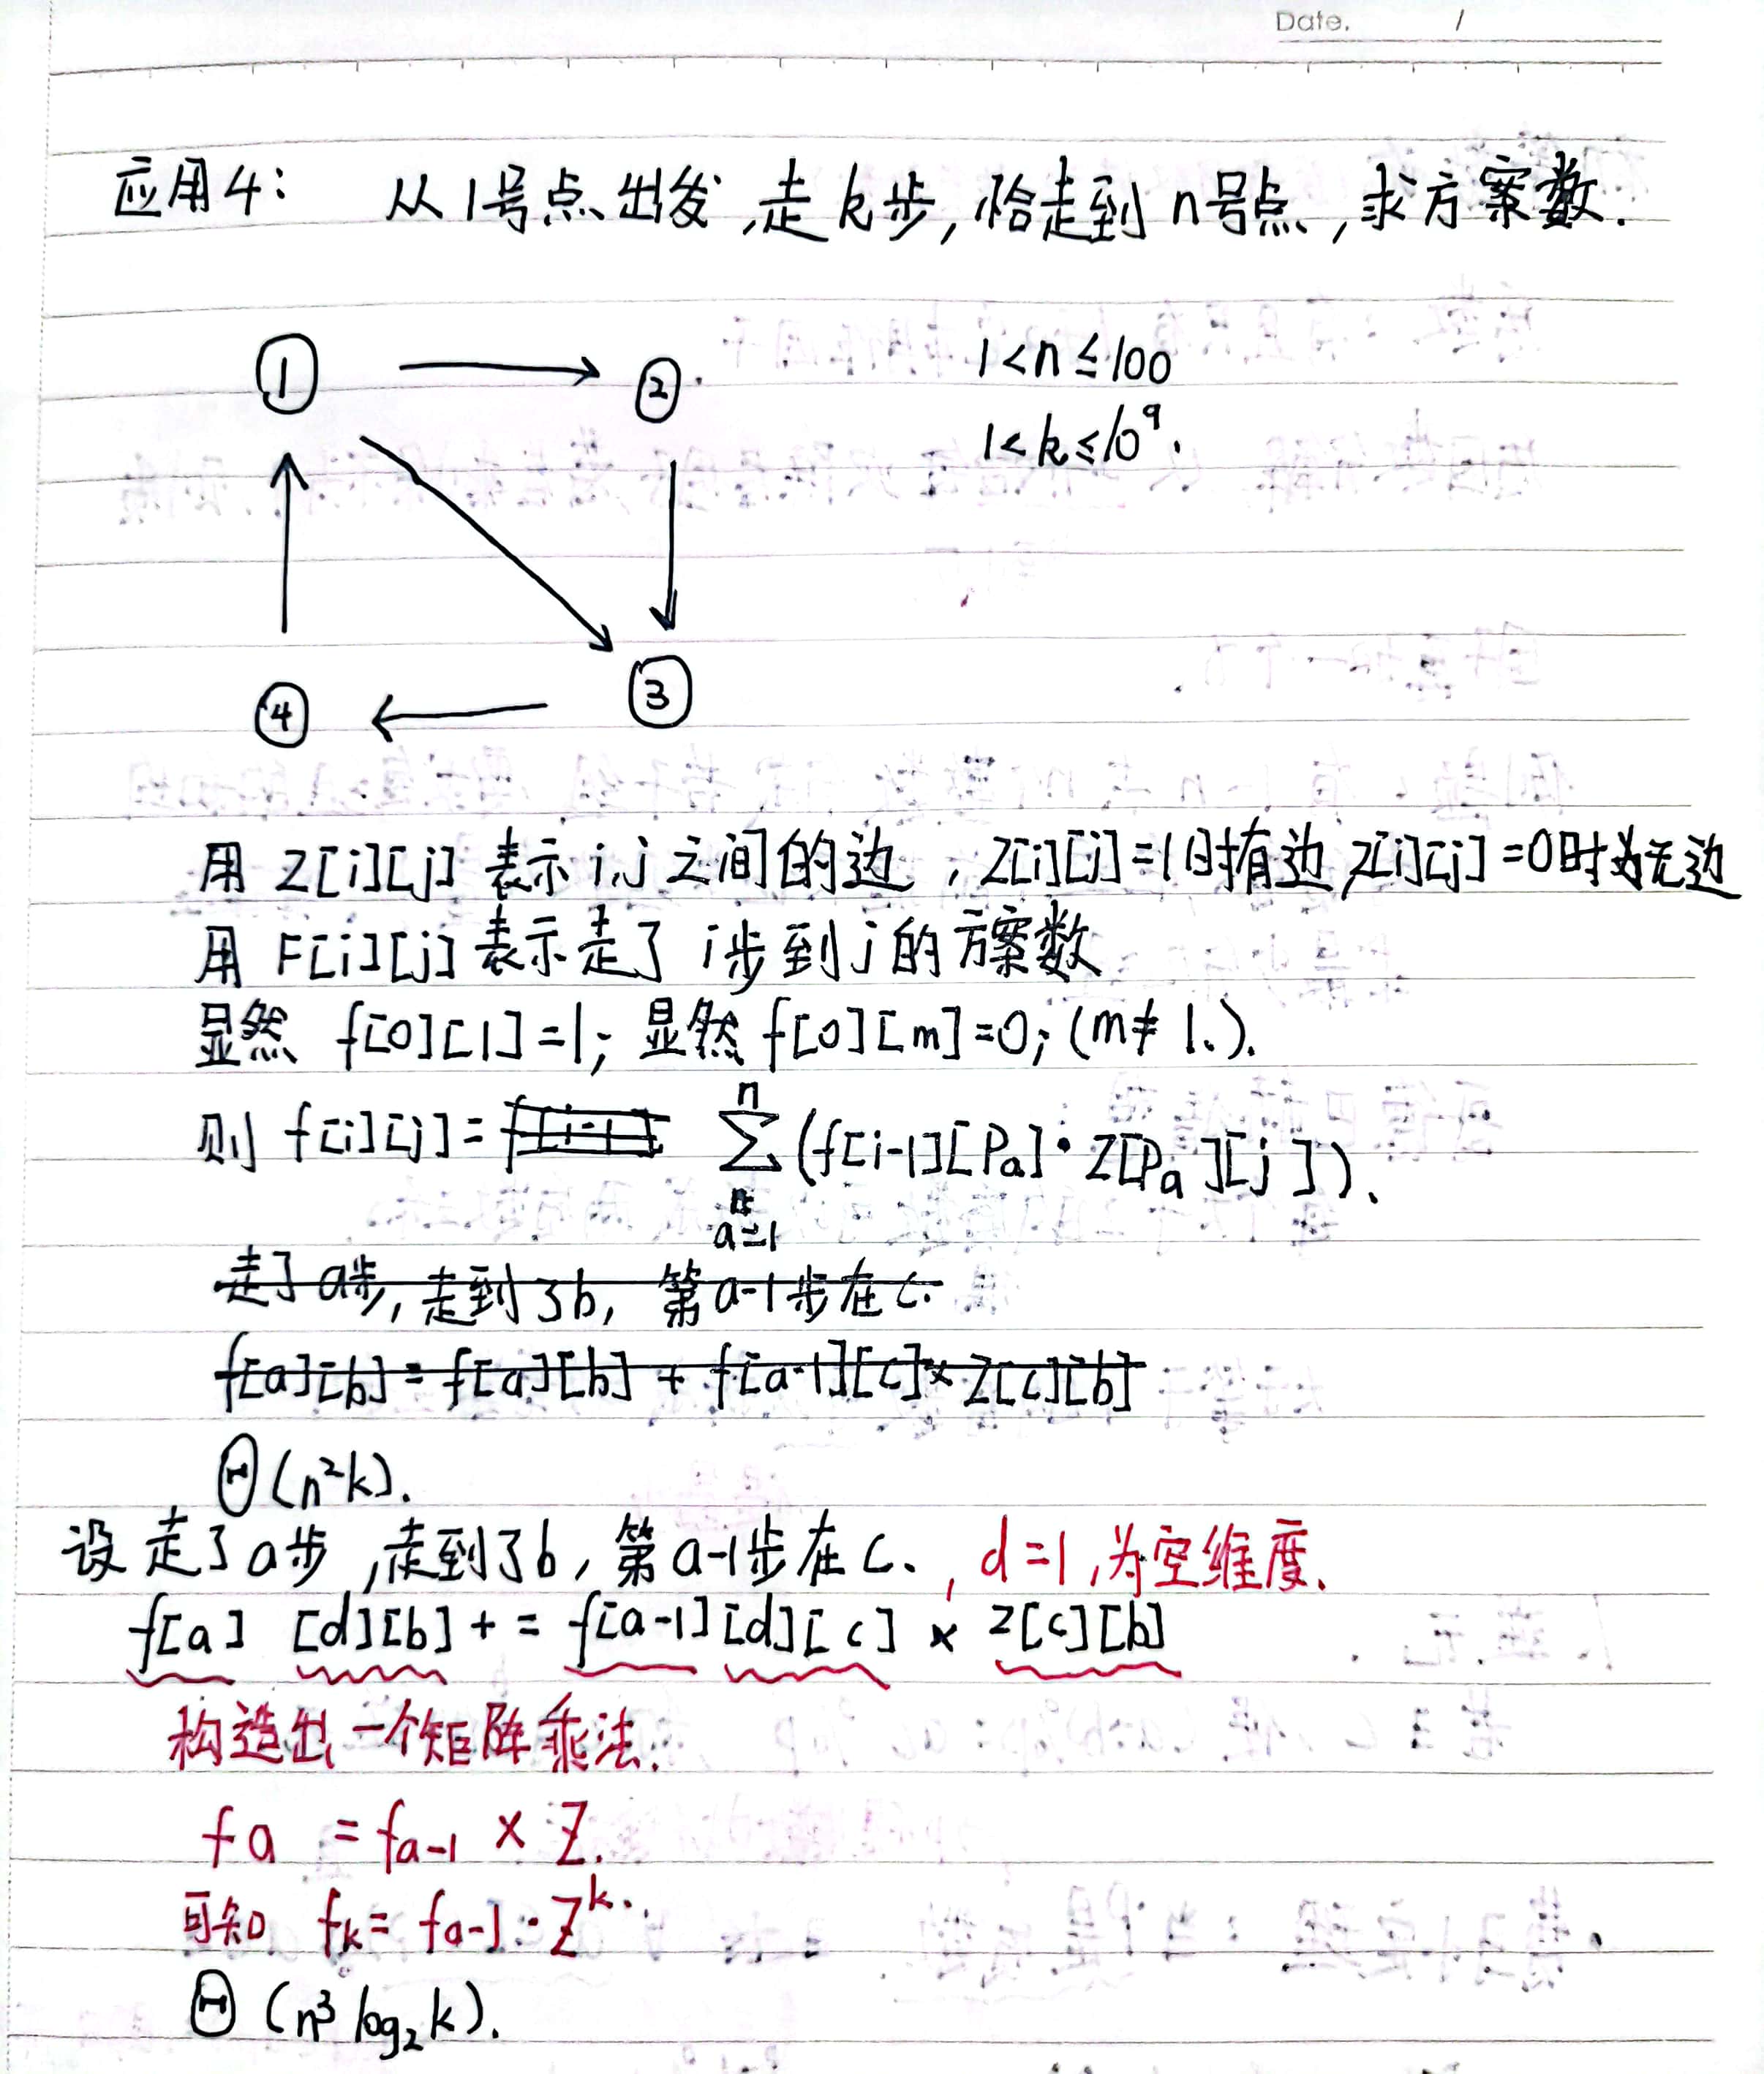 Date. /
应用4: 从1号点出发,走k步,恰走到n号点,求方案数.
① ②
1<n≤100
1<k≤10⁹.
④ ③
用Z[i][j]表示i,j之间的边,Z[i][j]=1时有边,Z[i][j]=0时为无边
用F[i][j]表示走了i步到j的方案数
显然 f[0][1]=1; 显然f[0][m]=0; (m≠1.).
则 f[i][j]= f[i-1][ ∑ⁿₐ₌₁ (f[i-1][Pₐ]·Z[Pₐ][j]).
走了a步,走到了b, 第a-1步在c.
f[a][b]=f[a][b]+f[a-1][c]×Z[c][b]
Θ(n²k).
设走了a步,走到了b,第a-1步在c.,d=1,为空维度.
f[a] [d][b]+=f[a-1][d][c]×Z[c][b]
构造出一个矩阵乘法.
fa =fₐ₋₁×Z.
可知 fₖ=fₐ₋₁·Zᵏ.
Θ(n³log₂k).